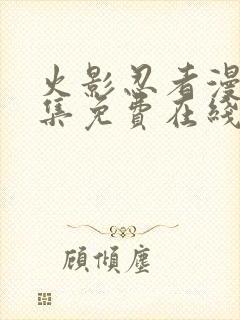 火影忍者漫
集免费在线
顾倾尘